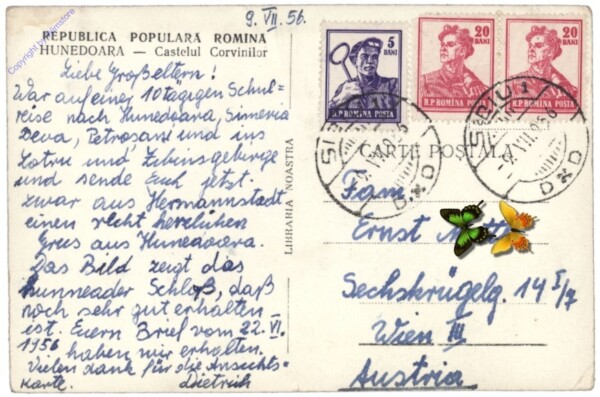 Copyright by hamstore
9. VII. 56.
REPUBLICA POPULARA ROMINA
HUNEDOARA — Castelul Corvinilor
Liebe Großeltern!
War auf einer 10tägigen Schul-
reise nach Hunedoara, Simeria
Deva, Petroșani und ins
Lotru und Zibinsgebirge
und sende Euch jetzt
zwar aus Hermannstadt
einen recht herzlichen
Grus aus Hunedoara.
Das Bild zeigt das
Hunneader Schloß, daß
noch sehr gut erhalten
ist. Euern Brief vom 22. VI.
1956 haben wir erhalten.
Vielen dank für die Ansichts-
karte. Dietrich
LIBRARIA NOASTRA
5
BANI
R.P. ROMINA POSTA
20
BANI
R.P. ROMINA POSTA
20
BANI
R.P. ROMINA POSTA
SIBIU 1
CARTE POSTALA
Fam
Ernst
Sechskrügelg. 14 I/7
Wien III
Austria